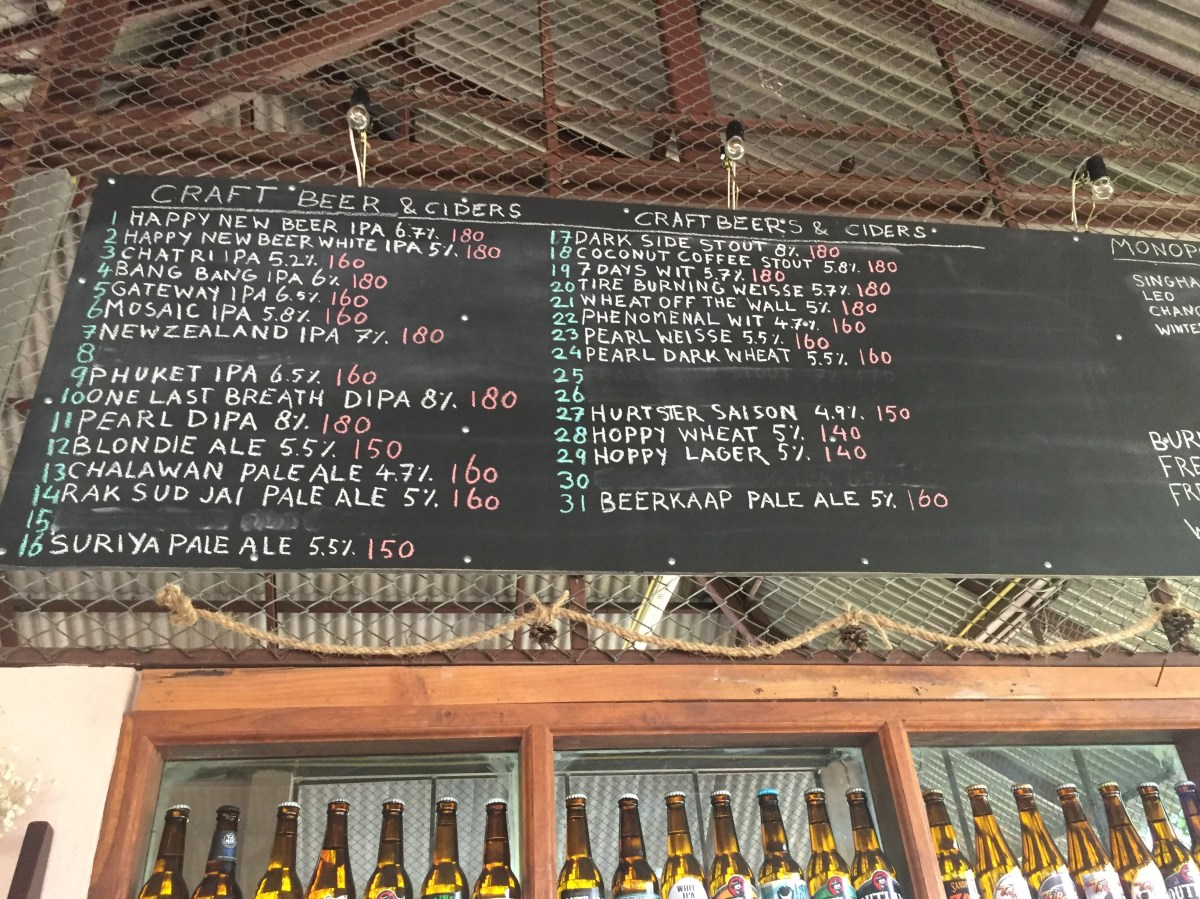 CRAFT BEER & CIDERS
1 HAPPY NEW BEER IPA 6.7% 180
2 HAPPY NEW BEER WHITE IPA 5% 180
3 CHATRI IPA 5.2% 160
4 BANG BANG IPA 6% 180
5 GATEWAY IPA 6.5% 160
6 MOSAIC IPA 5.8% 160
7 NEWZEALAND IPA 7% 180
8
9 PHUKET IPA 6.5% 160
10 ONE LAST BREATH DIPA 8% 180
11 PEARL DIPA 8% 180
12 BLONDIE ALE 5.5% 150
13 CHALAWAN PALE ALE 4.7% 160
14 RAK SUD JAI PALE ALE 5% 160
15
16 SURIYA PALE ALE 5.5% 150
CRAFT BEER'S & CIDERS
17 DARK SIDE STOUT 8% 180
18 COCONUT COFFEE STOUT 5.8% 180
19 7 DAYS WIT 5.7% 180
20 TIRE BURNING WEISSE 5.7% 180
21 WHEAT OFF THE WALL 5% 180
22 PHENOMENAL WIT 4.7% 160
23 PEARL WEISSE 5.5% 160
24 PEARL DARK WHEAT 5.5% 160
25
26
27 HURTSTER SAISON 4.9% 150
28 HOPPY WHEAT 5% 140
29 HOPPY LAGER 5% 140
30
31 BEERKAAP PALE ALE 5% 160
MONOP
SINGHA
LEO
CHANG
WINTE
BUR
FRE
FRE
WHIT
IPA